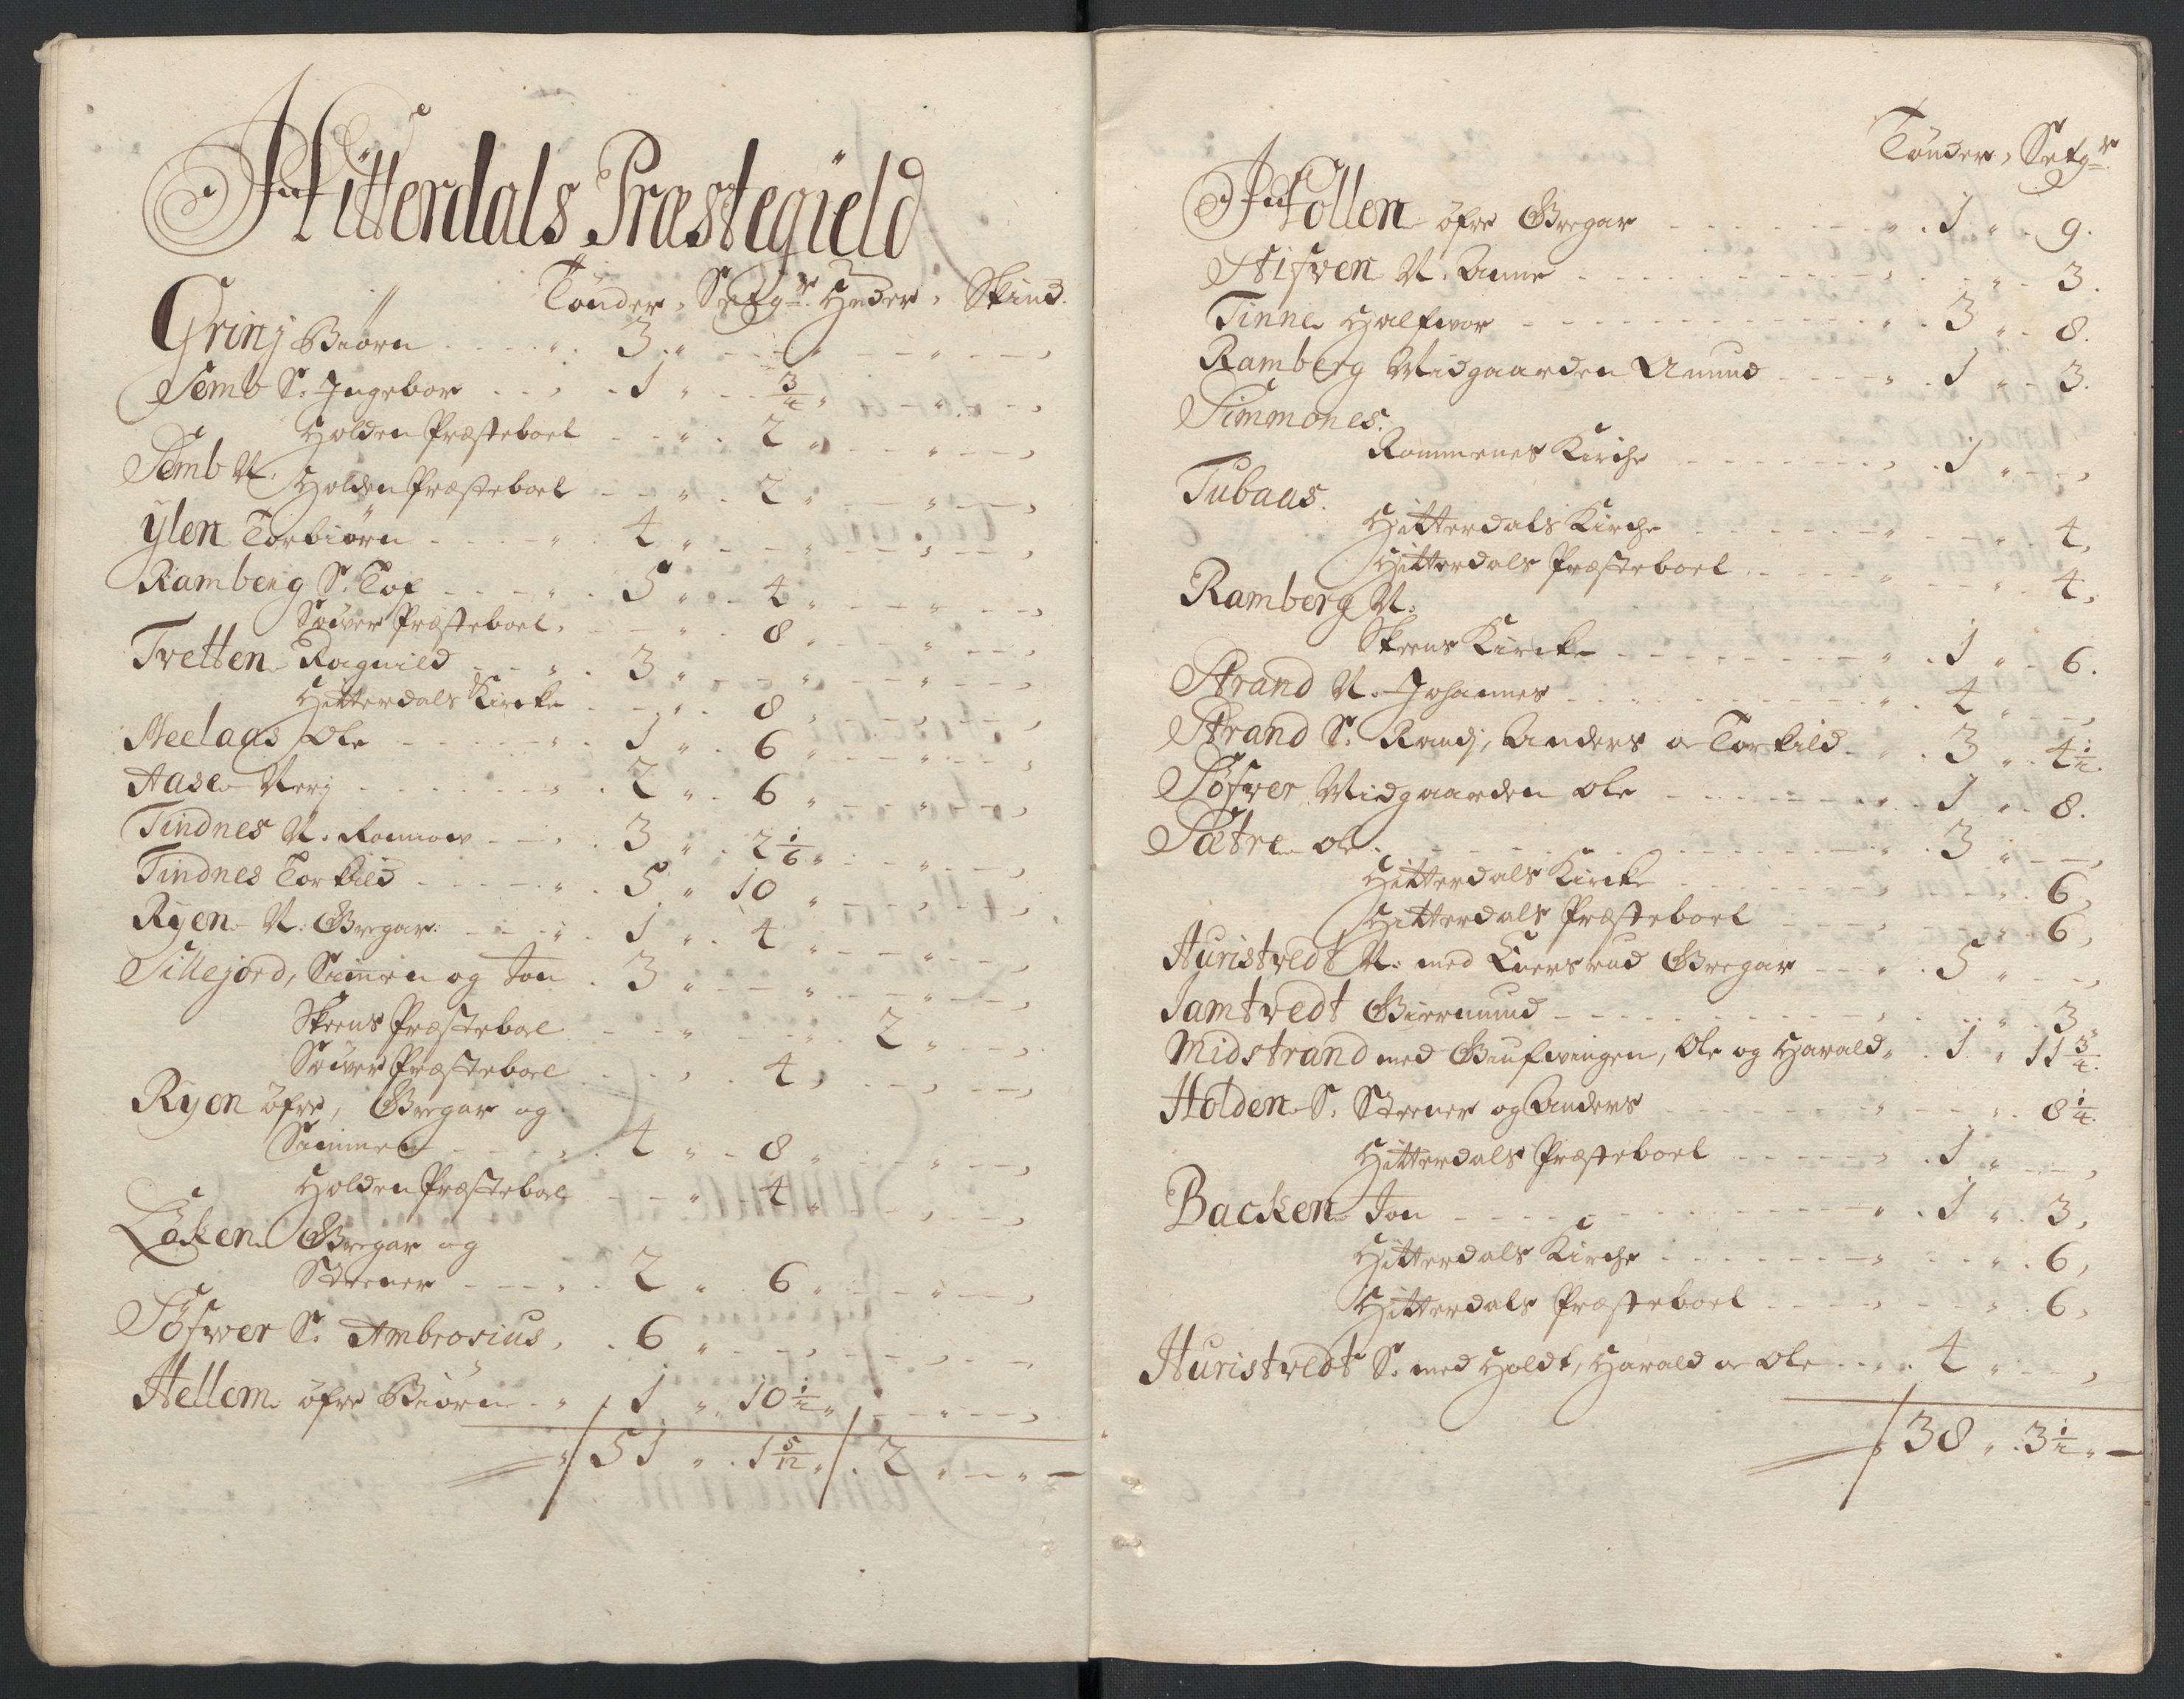 Hitterdals Præstegield
Tönder, Setgr. Huder, Skind.
Grini Biörn 3
Semb S. Ingebor 1 3/4
Holden Præsteboel 2
Semb N. Holden Præsteboel 2
Ylen Torbiörn 4
Ramberg S. Tof 5 4
Söwer Præsteboel 8
Tvetten Ragnild 3
Hitterdals Kircke 8
Meelaas Ole 1 6
Aase Nerj 2 6
Tindnes N. Rannow 3 2 1/6
Tindnes Torkild 5 10
Ryen N. Gregar 1 4
Sillejord, Simen og Jon 3
Skeens Præsteboel 2
Söwer Præsteboel 4
Ryen öfre, Gregar og
Simmen 4 8
Holden Præsteboel 4
Löken Gregar og
Steener 2 6
Söfwer S. Ambrosius 6
Hellem öfre Biörn 1 10 1/2
51 1 5/12 2
Tönder, Setgr.
Hollen öfre Gregar 1 9.
Stifven N. Anne 3.
Tinne Halfwor 3 8.
Ramberg Midgaarden Amund 1 3.
Simmones.
Rommenes Kirche 1
Tubaas.
Hitterdals Kirche 4,
Hitterdals Præsteboel 4,
Ramberg N.
Skeens Kircke 1 6.
Strand N. Johannes 4
Strand S. Randj, Anders o Torkild 3 4 1/2.
Söfwer Midgaarden Ole 1 8.
Sætre Ole 3
Hitterdals Kircke 6,
Hitterdals Præsteboel 6,
Huristvedt N. med Luersrud Gregar 5
Jamtvedt Giermund 3
Midstrand med Giufwingen, Ole og Harald 1 11 3/4.
Holden S. Steener og Anders 8 1/4.
Hitterdals Præsteboel 1
Backen Jon 1 3,
Hitterdals Kirche 6,
Hitterdals Præsteboel 6,
Huristvedt S. med Holdt, Harald o Ole 4
38 3 1/2